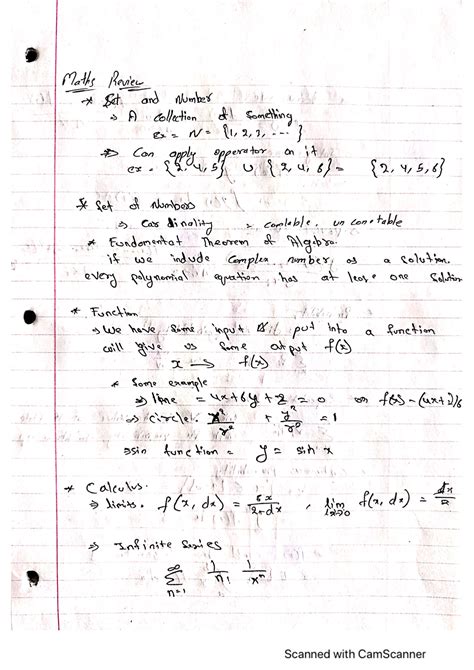 Maths Review
* Set and Number
→ A collection of Something
ex = N = {1, 2, 3, ---- }
⇒ Can apply opperator on it
ex = {2, 4, 5} ∪ {2, 4, 6} = {2, 4, 5, 6}
* Set of Numbers
⇒ Cardinality = countable, uncountable
* Fundamental Theorem of Algibra.
if we include Complex number as a solution.
every polynomial equation has at least one Solution
* Function
→ We have some input & put into a function
will give us some output f(x)
x → f(x)
* Some example
⇒ line = 4x+6y+z = 0 or f(x) - (4x+z)/6
⇒ circle. x²/r² + y²/r² = 1
⇒ sin function = y = sin x
* Calculus.
⇒ limits. f(x, dx) = 6x/2+dx , lim f(x, dx) =
⇒ Infinite Series
∞
∑ 1/n! 1/xⁿ
n=1
Scanned with CamScanner